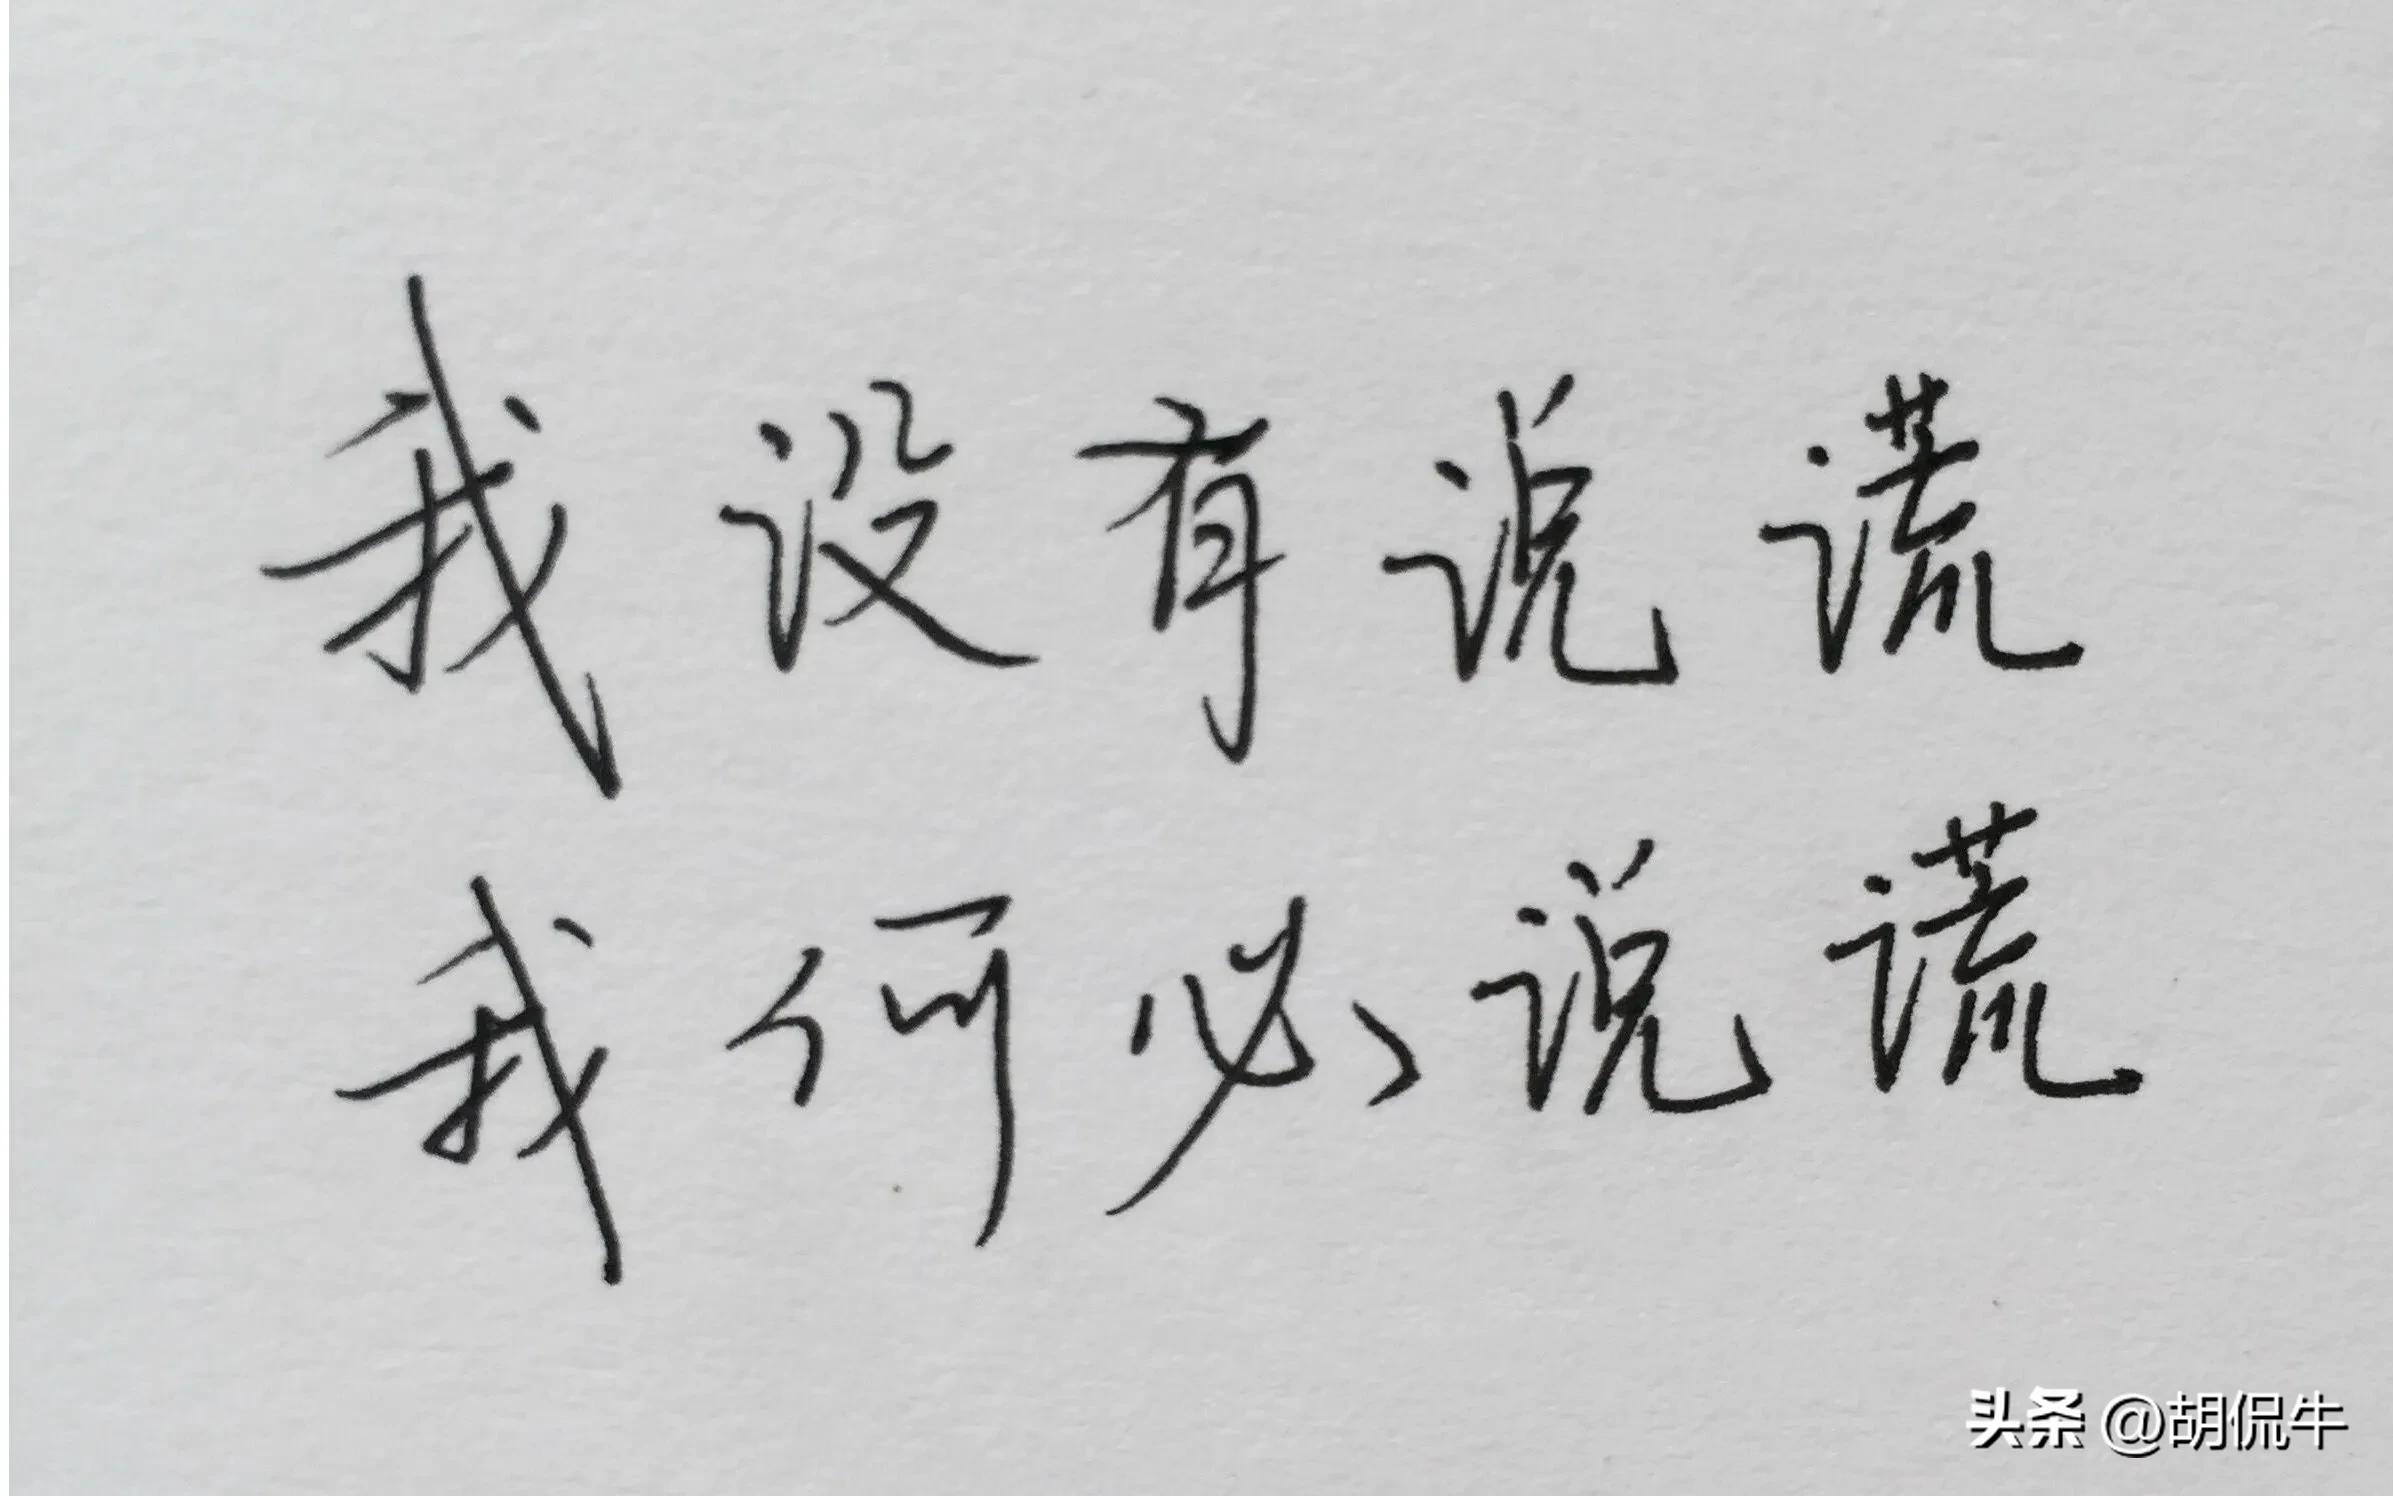 我没有说谎
我何必说谎
头条 @胡侃牛